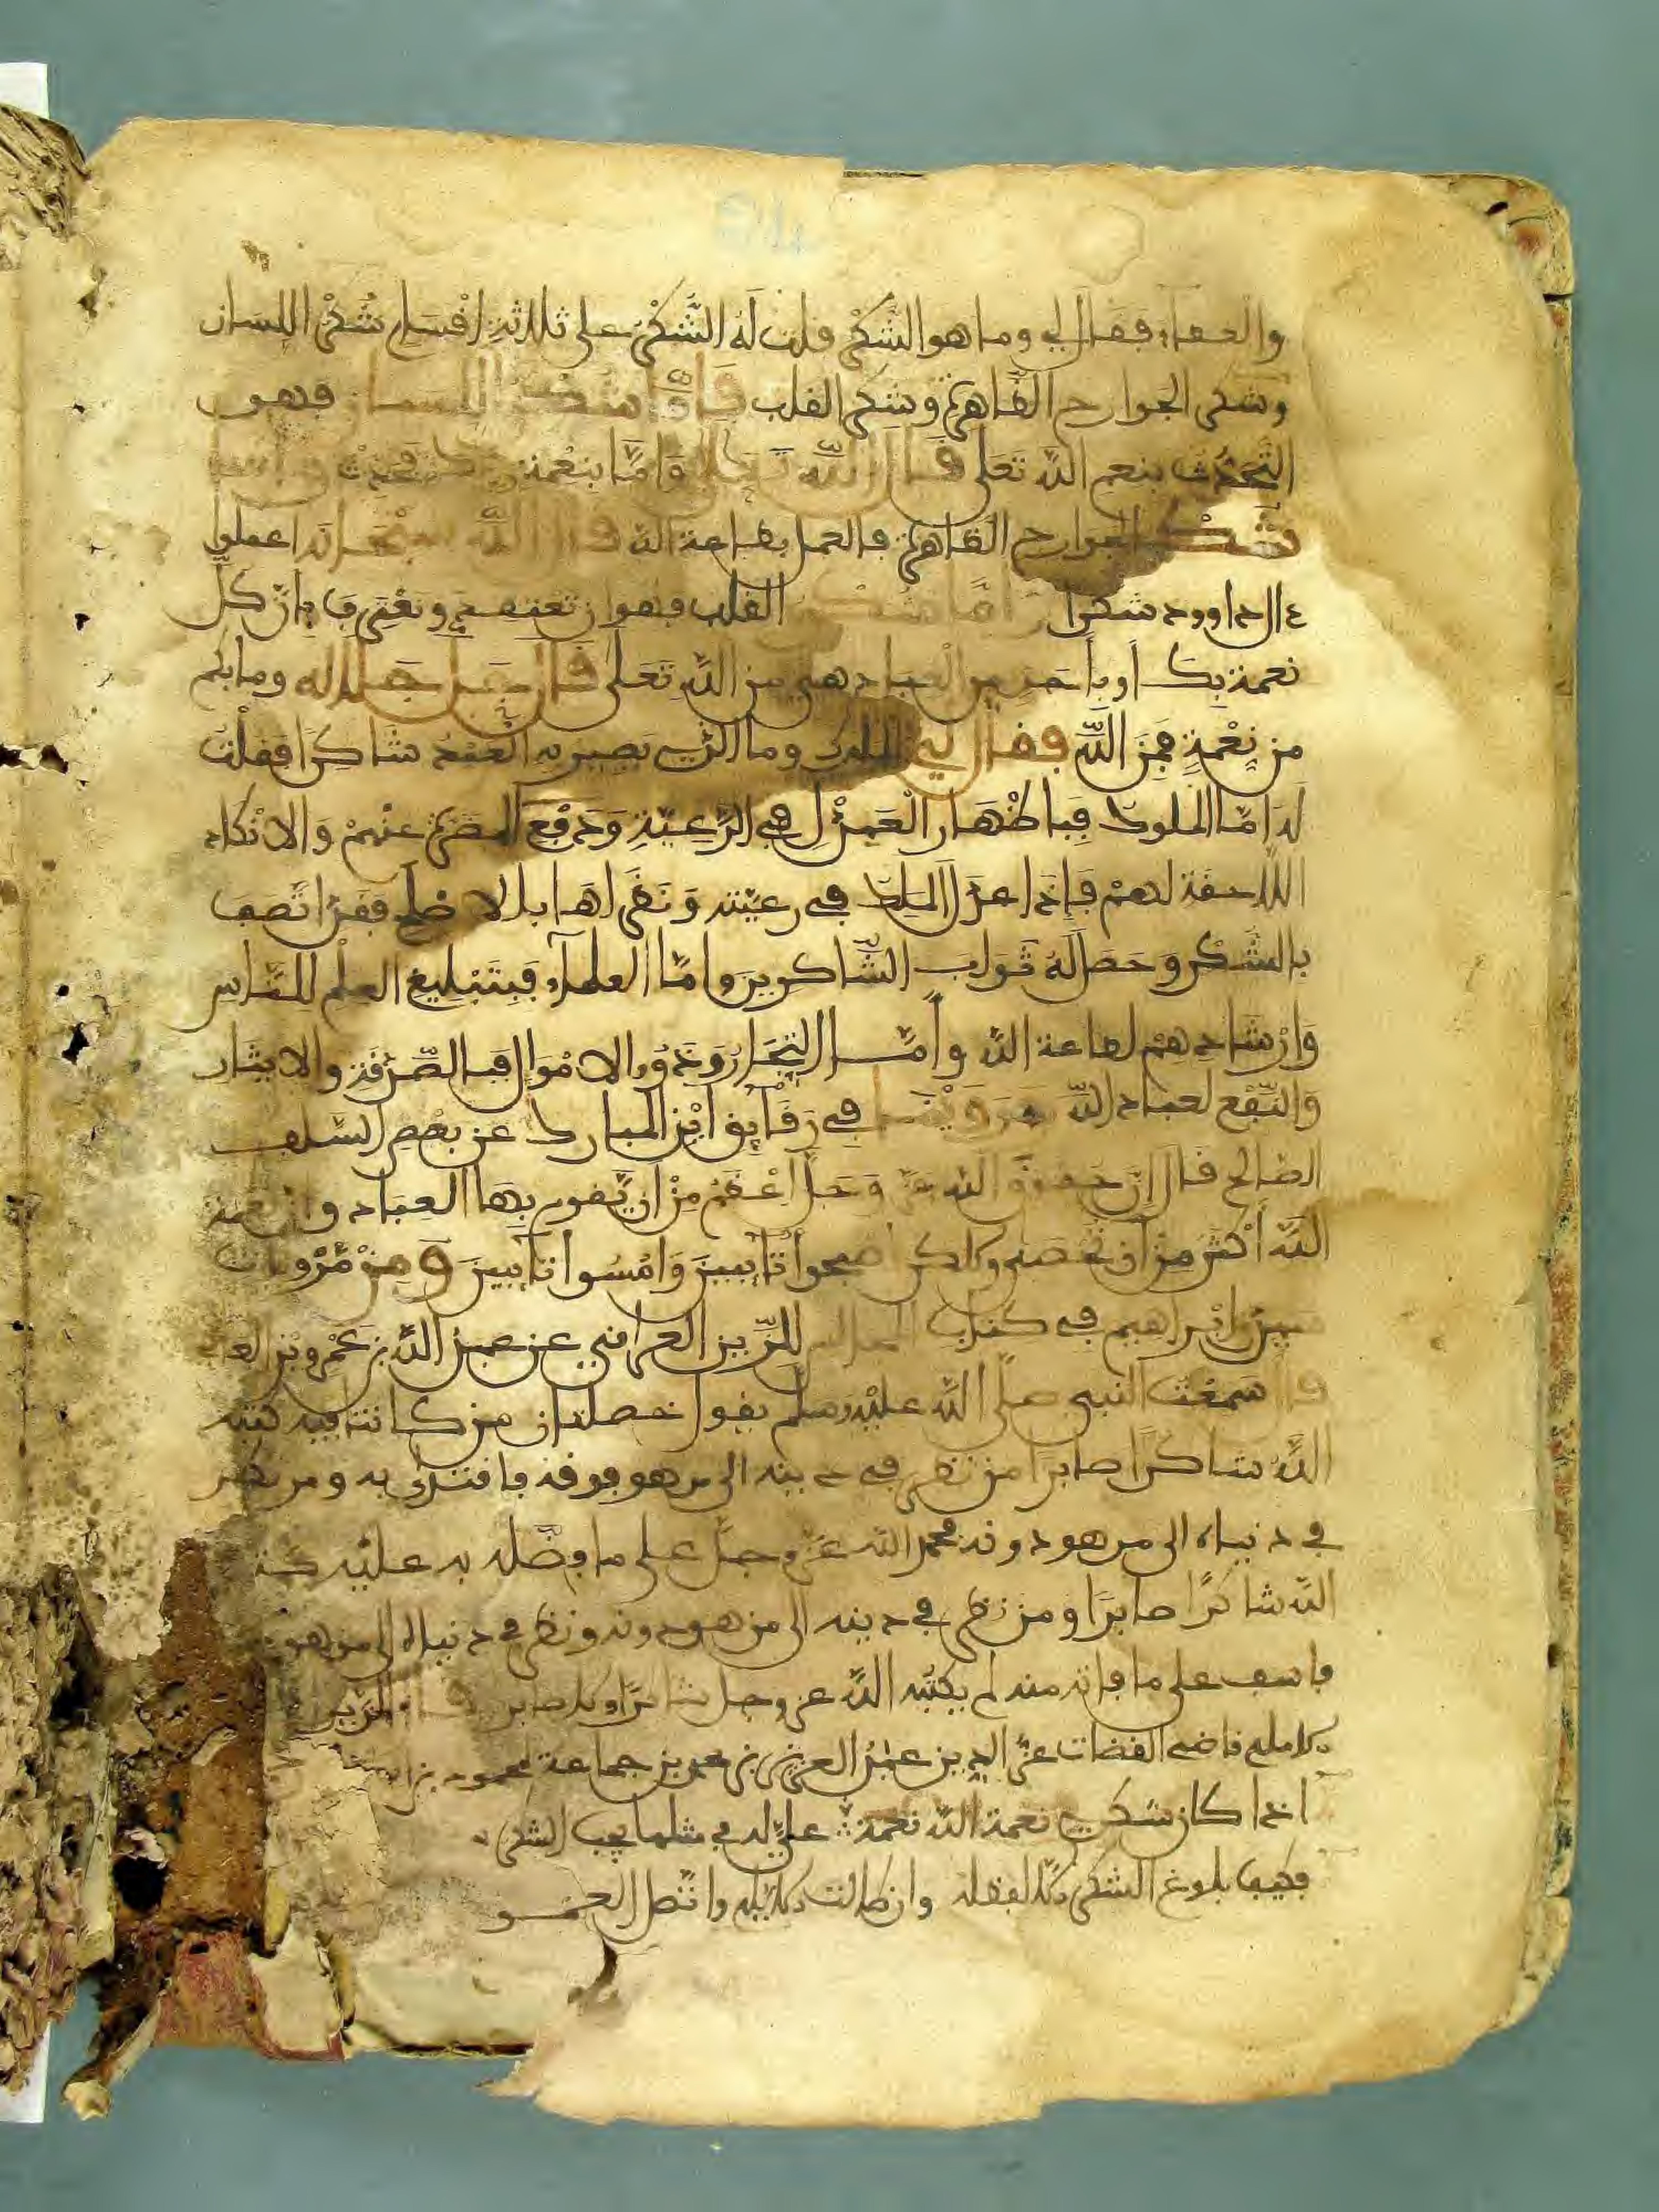 والعفاء فقال لي وما هو الشكر قلت له الشكر على ثلاثة اقسام شكر اللسان
وشكر الجوارح الظاهرة وشكر القلب فاما شكر اللسان فهو
التحدث بنعم الله تعلى قال الله تعلى واما بنعمة ربك فحدث واما
شكر الجوارح الظاهرة فالعمل بطاعة الله قال الله سبحانه اعملوا
ءال داوود شكرا واما شكر القلب فهو ان تعلم وتعترف بان كل
نعمة بك او باحد من العباد هي من الله تعلى قال جل جلاله وما بكم
من نعمة فمن الله فقال لي الملوك وما الذي يصير به العبد شاكرا فقلت
له اما الملوك فباظهار العدل في الرعية ودفع المضرة عنهم والانكاد
اللاحقة لهم فاذا عدل الملك في رعيته ونظر لها بلا ظلم فقد اتصف
بالشكر وحصل له ثواب الشاكرين واما العلماء فبتبليغ العلم للناس
وارشادهم لطاعة الله واما التجار وذوو الاموال فبالصدقة والايثار
والنفع لعباد الله وروينا في رقايق ابن المبارك عن بعض السلف
الصالح قال ان حقوق الله عز وجل اعظم من ان يقوم بها العباد وان نعمة
الله اكثر من ان تحصى ولكن اصبحوا تايبين وامسوا تايبين ومن مرويات
ابراهيم في كتاب المجالس للزين العراقي عن عبد الله بن عمرو بن العا
قال سمعت النبي صلى الله عليه وسلم يقول خصلتان من كانتا فيه كتبه
الله شاكرا صابرا من نظر في دينه الى من هو فوقه فاقتدى به ومن نظر
في دنياه الى من هو دونه فحمد الله عز وجل على ما فضله به عليه كتبه
الله شاكرا صابرا ومن نظر في دينه الى من هو دونه ونظر في دنياه الى من هو
فاسف على ما فاته منه لم يكتبه الله عز وجل شاكرا ولا صابرا قال
قاضي القضات عز الدين عبد العزيز بن محمد بن جماعة محمود
اذا كان شكري نعمة الله نعمة علي له في مثلها يجب الشكر
فكيف بلوغ الشكر الا بفضله وان طالت الايام واتصل العمر